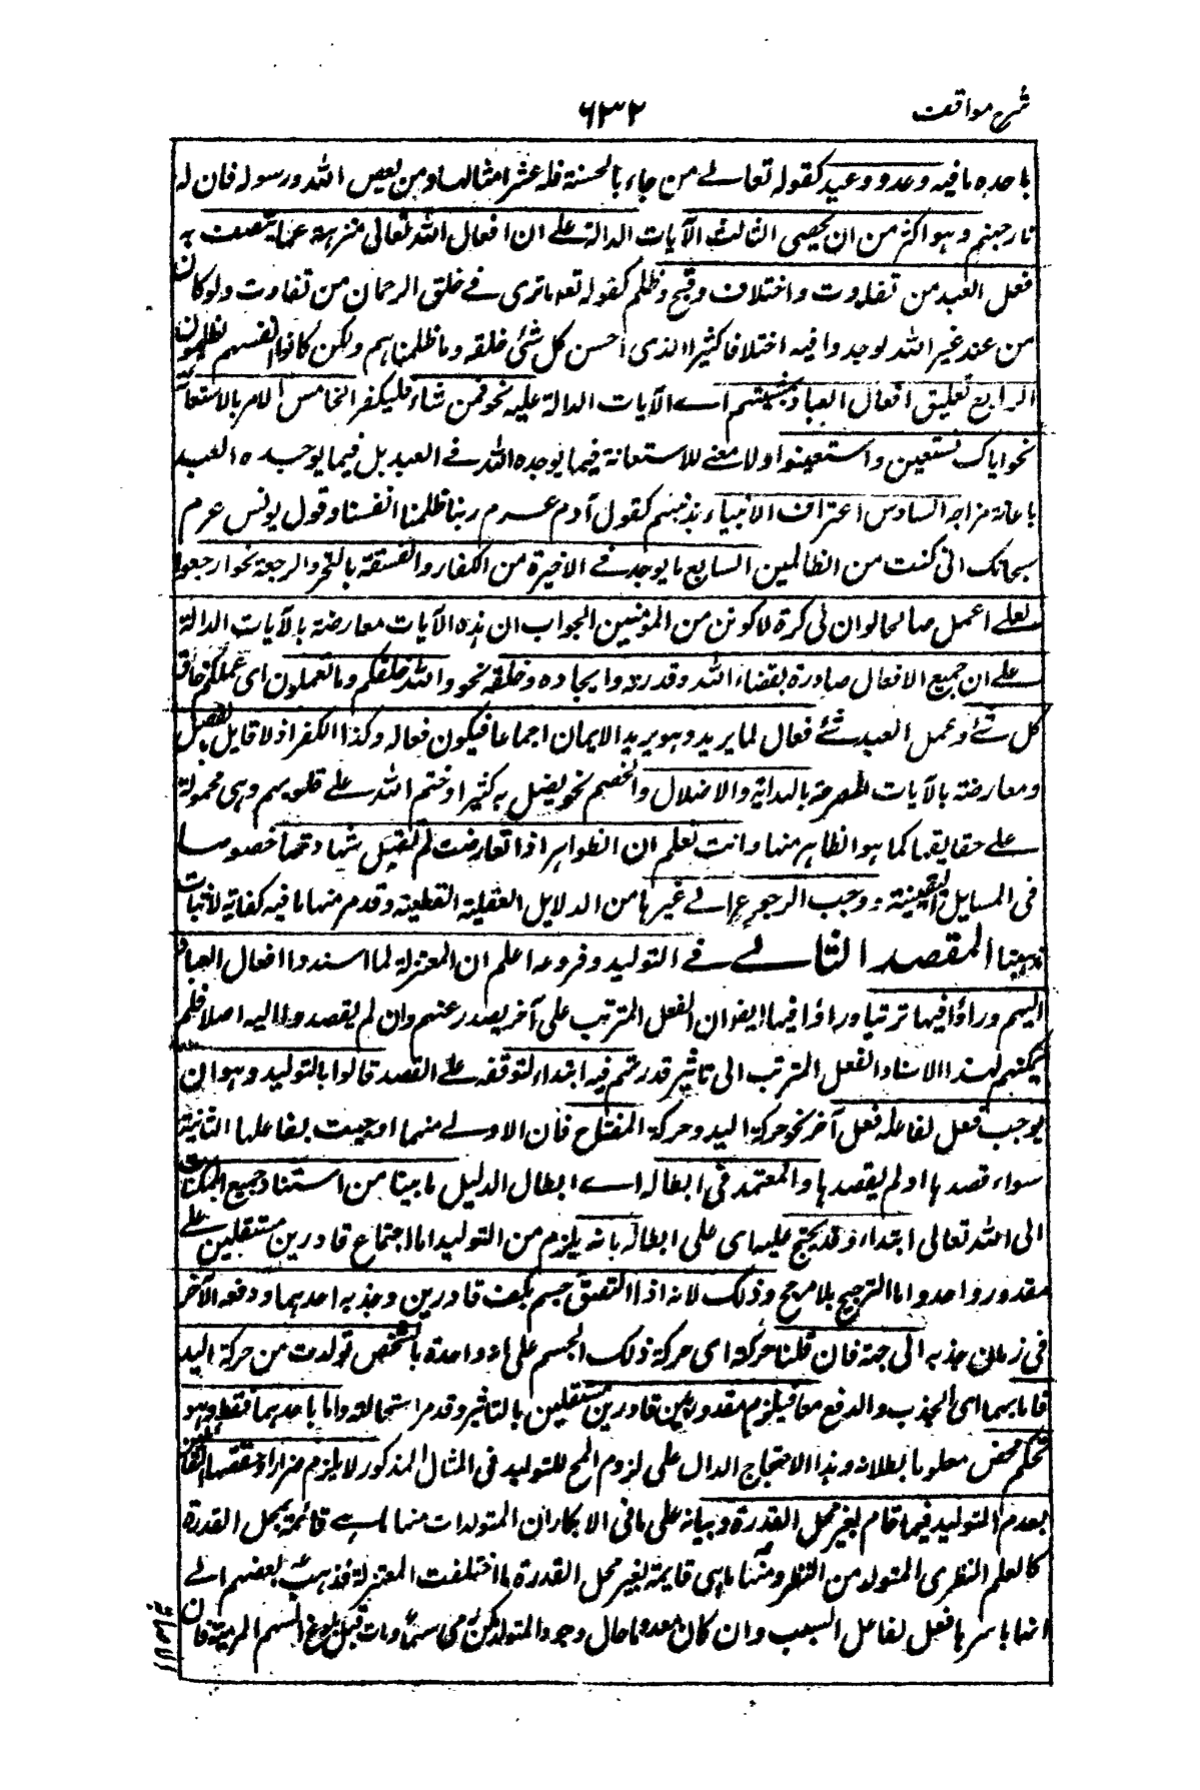 شرح مواقف
۶۳۲
باحدہ مافیہ وعدو وعید کقولہ تعالے من جاء بالحسنۃ فلہ عشر امثالہا ومن یعص اللہ ورسولہ فان لہ
نار جہنم وہو اکثر من ان یحصی الثالث الآیات الدالۃ علے ان افعال اللہ تعالی منزہۃ عما یتصف بہ
فعل العبد من تفاوت واختلاف وقبح وظلم کقولہ تعہ ماتری فے خلق الرحمان من تفاوت ولو کان
من عند غیر اللہ لوجدوا فیہ اختلافا کثیرا الذی احسن کل شئ خلقہ وما ظلمناہم ولکن کانوا انفسہم یظلمون
الرابع تعلیق افعال العباد بمشیتہم اے الآیات الدالۃ علیہ نحو فمن شاء فلیکفر الخامس الامر بالاستعا
نحو ایاک نستعین واستعینوا ولا معنے للاستعانۃ فیما یوجدہ اللہ فے العبد بل فیما یوجدہ العبد
باعانۃ من اجہ السادس اعتراف الانبیاء بذنبہم کقول آدم عم ربنا ظلمنا انفسنا وقول یونس عم
سبحانک انی کنت من الظالمین السابع ما یوجد فے الاخیرۃ من الکفار والفسقۃ بالتحسر والرجعۃ نحو ارجعوا
لعلے اعمل صالحا لو ان لی کرۃ لاکونن من المؤمنین الجواب ان ہذہ الآیات معارضۃ بالآیات الدالۃ
علے ان جمیع الافعال صادرۃ بقضاء اللہ وقدرتہ وایجادہ وخلقہ نحو واللہ خلقکم وما تعملون ای عملکم خالق
کل شئے وعمل العبد شئے فعال لما یرید وہو یرید الایمان اجماعا فیکون فعالہ وکذا الکفر اذ لا قایل بالفصل
ومعارضۃ بالآیات المصرحۃ بالہدایۃ والاضلال والختم نحو یضل بہ کثیرا وختم اللہ علے قلوبہم وہی محمولۃ
علے حقایقہا کما ہو الظاہر منہا وانت تعلم ان الظواہر اذا تعارضت لم تقبل شہادتہا خصوصا
فی المسایل الیقینیۃ ووجب الرجوع الے غیرہا من الدلایل العقلیۃ القطعیۃ وقد مر منہا ما فیہ کفایۃ لاثبات
مذہبنا المقصد الثانے فے التولید وفروعہ اعلم ان المعتزلۃ لما اسندوا افعال العباد
الیہم وراؤا فیہا ترتبا وراؤا فیہا ایضا ان الفعل المترتب علی آخر یصدر عنہم وان لم یقصدوا الیہ اصلا فلم
یمکنہم لہذا الاسناد الفعل المترتب الی تاثیر قدرتہم فیہ ابتداء لتوقفہ علے القصد قالوا بالتولید وہو ان
یوجب فعل لفاعلہ فعل آخر نحو حرکۃ الید وحرکۃ المفتاح فان الاولے منہما اوجبت لفاعلہا الثانیۃ
سواء قصدہا او لم یقصدہا والمعتمد فی ابطالہ اے ابطال الدلیل ما بینا من استناد جمیع الممکنات
الی اللہ تعالی ابتداء وقد یحتج علیہ ای علی ابطالہ بانہ یلزم من التولید اما اجتماع قادرین مستقلین علے
مقدور واحد واما الترجیح بلا مرجح وذلک لانہ اذا التصق جسم بکف قادرین وجذبہ احدہما ودفعہ الآخر
فی زمان جذبہ الی جہۃ فان قلنا حرکتہ ای حرکۃ ذلک الجسم علی انہ واحدۃ بالشخص تولدت من حرکۃ الید
فاما بہما ای الجذب والدفع معا فیلزم مقدور بین قادرین مستقلین بالتاثیر وقد مر استحالتہ واما باحدہما فقط وہو
تحکم محض معلوما بطلانہ وہذا الاحتجاج الدال علی لزوم المح للتولید فی المثال المذکور لا یلزم ضرارا وحفصا القائلین
بعدم التولید فیما قام بغیر محل القدرۃ وبیانہ علی ما فی الابکار ان المتولدات منہا ما ہے قائمۃ بمحل القدرۃ
کالعلم النظری المتولد من النظر ومنہا ما ہی قایمۃ بغیر محل القدرۃ ما اختلفت المعتزلۃ فذہب بعضہم الے
انہا باسرہا فعل لفاعل السبب وان کان معدوما حال وجود المتولد کمن رمی سہما ومات قبل بلوغ السہم الرمیۃ فان